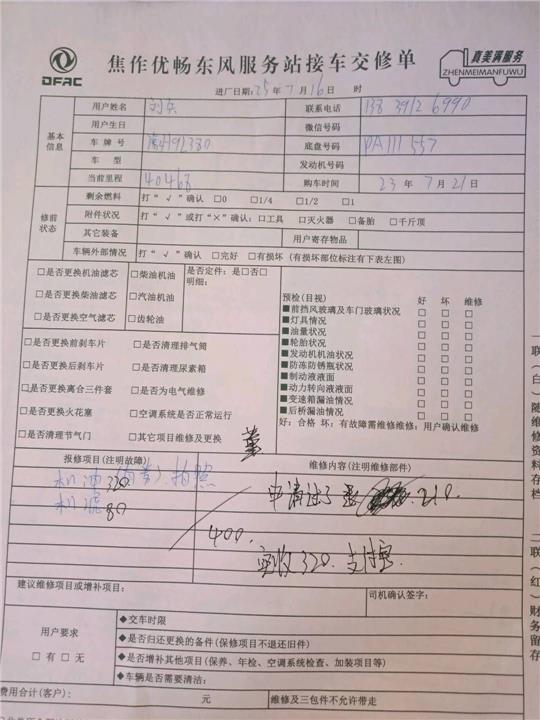 DFAC
焦作优畅东风服务站接车交修单
真美满服务
ZHENMEIMANFUWU
进厂日期:25年7月16日 时
基本信息
用户姓名 联系电话 138 3912 6990
用户生日 微信号码
车牌号 底盘号码 PA111557
车型 发动机号码
当前里程 40468 购车时间 23年7月21日
修前状态
剩余燃料 打“√”确认 □0 □1/4 □1/2 □1
附件状况 打“√”或打“×”确认:□工具 □灭火器 □备胎 □千斤顶
其它装备 用户寄存物品
车辆外部情况 打“√”确认 □完好 □有损坏(有损坏部位标注有下表左图)
□是否更换机油滤芯 □柴油机油 是否定件:是□否□
明细:
□是否更换柴油滤芯 □汽油机油
□是否更换空气滤芯 □齿轮油
□是否更换前刹车片 □是否清理排气筒
□是否更换后刹车片 □是否清理尿素箱
□是否更换离合三件套 □是否为电气维修
□是否更换火花塞 □空调系统是否正常运行
□是否清理节气门 □其它项目维修及更换
预检(目视) 好 坏 维修
■前挡风玻璃及车门玻璃状况 □ □ □
■灯具情况 □ □ □
■油量状况 □ □ □
■轮胎状况 □ □ □
■发动机机油状况 □ □ □
■防冻防锈瓶状况 □ □ □
■制动液液面 □ □ □
■动力转向液液面 □ □ □
■变速箱漏油情况 □ □ □
■后桥漏油情况 □ □ □
好:合格 坏:有故障需维修维修:用户确认维修
报修项目(注明故障) 维修内容(注明维修部件)
机油 320 拍照
机滤 80
申请过了 210.
400.
实收320. 支付宝.
建议维修项目或增补项目: 司机确认签字:
用户要求
□有□无
◆交车时限
◆是否归还更换的备件(保修项目不退还旧件)
◆是否增补其他项目(保养、年检、空调系统检查、加装项目等)
◆车辆是否需要清洁:
费用合计(客户): 元 维修及三包件不允许带走
联(白)随维修资料存档
二联(红)财务留存